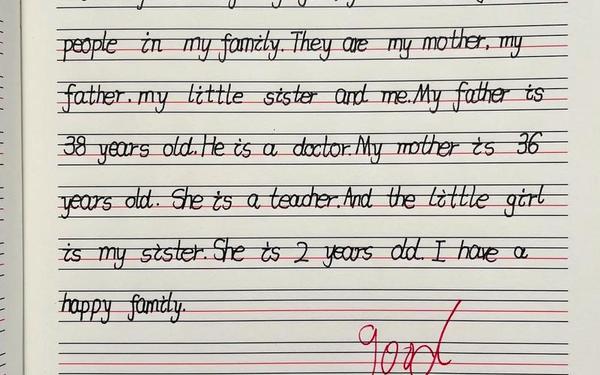 people in my family. They are my mother, my
father. my little sister and me. My father is
38 years old. He is a doctor. My mother is 36
years old. She is a teacher. And the little girl
is my sister. She is 2 years old. I have a
happy family.
good